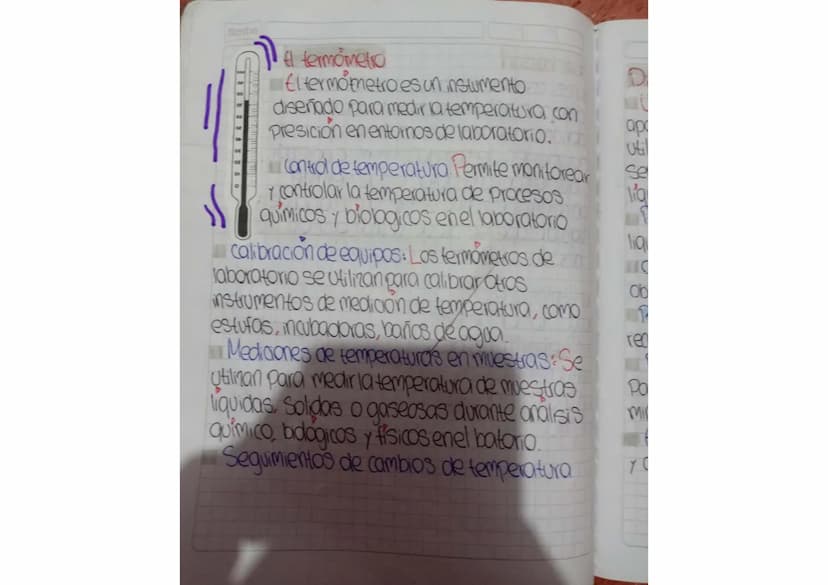 El termómetro
El termómetro es un instumento
diseñado para medir la temperatura con
presición en entornos de laboratorio.
Control de temperatura Permite monitorear
y controlar la temperatura de procesos
químicos y biologicos en el laboratorio
calibración de equipos: Los termómetros de
laboratorio se utilizan para calibrar otros
instrumentos de medición de temperatura, como
estufas, incubadoras, baños de agua.
Mediciones de temperaturas en muestras: Se
utilizan para medir la temperatura de muestras
liquidas, Solidas o gaseosas durante analisis
químico, biológicos y físicos en el batorio.
Seguimientos de cambios de temperatura